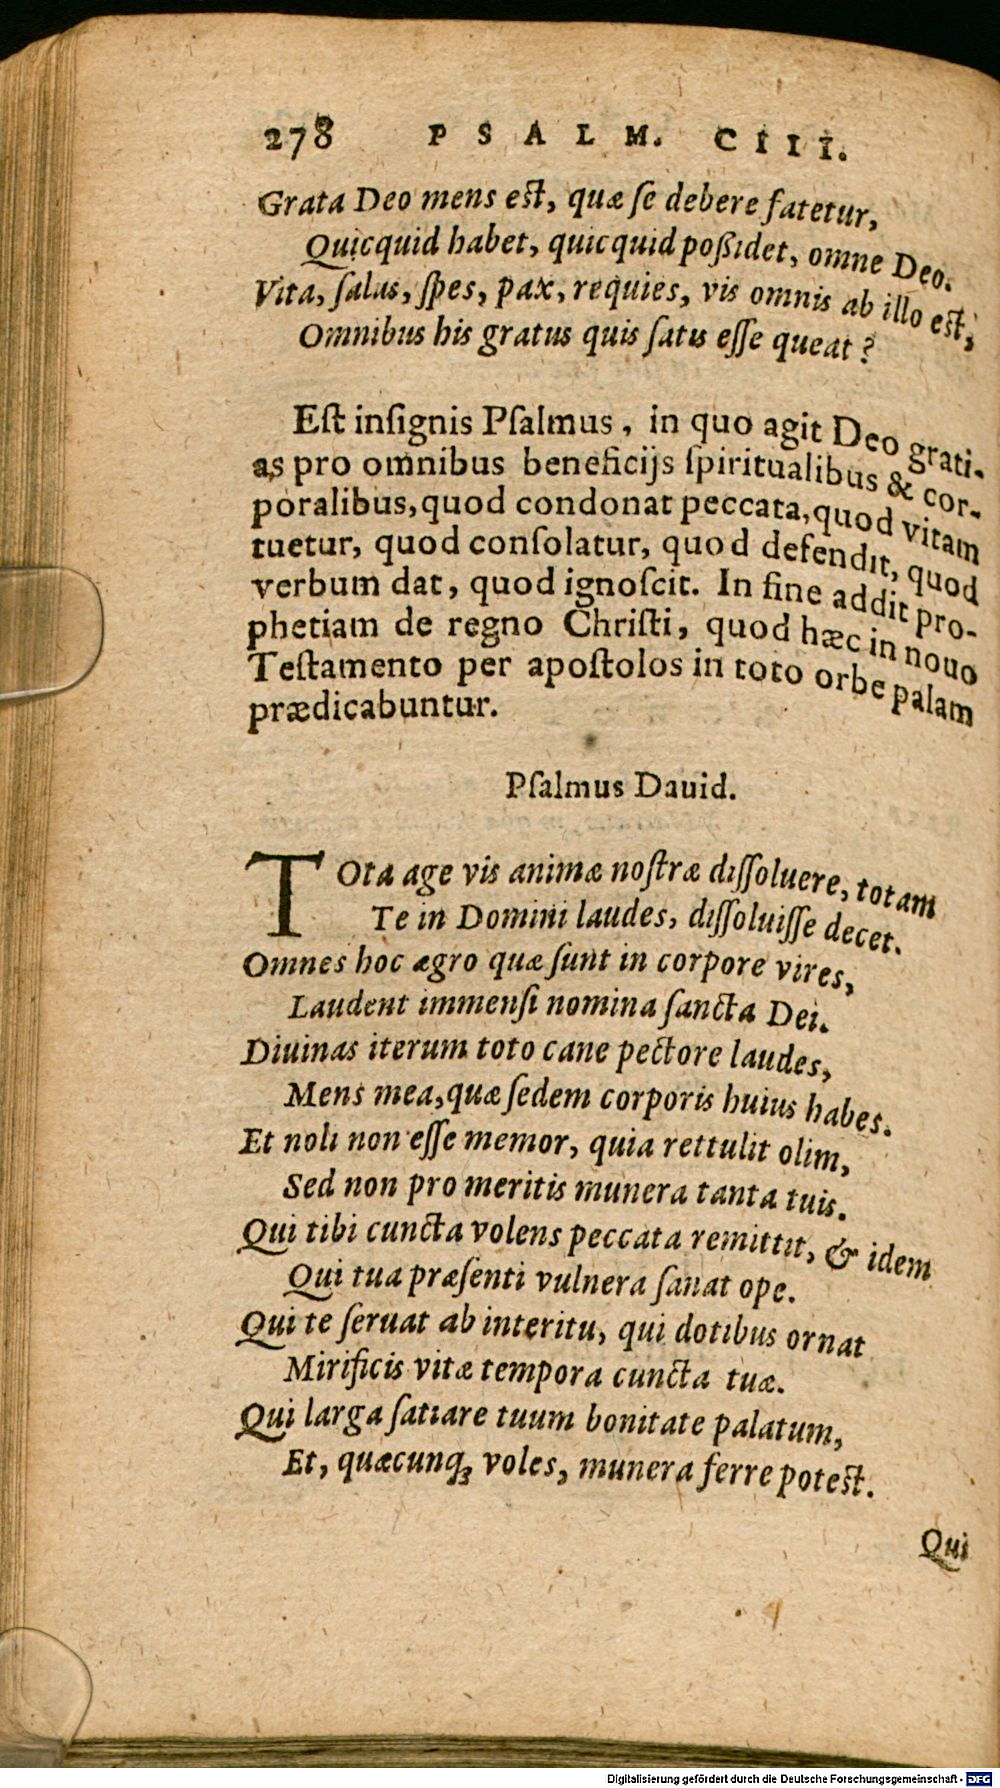 278 PSALM. CIII.
Grata Deo mens est, quæ ſe debere fatetur,
Quicquid habet, quicquid poßidet, omne Deo.
Vita, ſalus, ſpes, pax, requies, vis omnis ab illo est,
Omnibus his gratus quis ſatis eſſe queat?
Eſt inſignis Pſalmus, in quo agit Deo grati-
as pro omnibus beneficijs ſpiritualibus & cor-
poralibus, quod condonat peccata, quod vitam
tuetur, quod conſolatur, quod defendit, quod
verbum dat, quod ignoſcit. In fine addit pro-
phetiam de regno Chriſti, quod hæc in nouo
Teſtamento per apoſtolos in toto orbe palam
prædicabuntur.
Pſalmus Dauid.
TOta age vis animæ noſtræ diſſoluere, totam
Te in Domini laudes, diſſoluiſſe decet.
Omnes hoc ægro quæ ſunt in corpore vires,
Laudent immenſi nomina ſancta Dei.
Diuinas iterum toto cane pectore laudes,
Mens mea, quæ ſedem corporis huius habes.
Et noli non eſſe memor, quia rettulit olim,
Sed non pro meritis munera tanta tuis.
Qui tibi cuncta volens peccata remittit, & idem
Qui tua præſenti vulnera ſanat ope.
Qui te ſeruat ab interitu, qui dotibus ornat
Mirificis vitæ tempora cuncta tuæ.
Qui larga ſatiare tuum bonitate palatum,
Et, quæcunq́ꝫ voles, munera ferre potest.
Qui
Digitalisierung gefördert durch die Deutsche Forschungsgemeinschaft - DFG